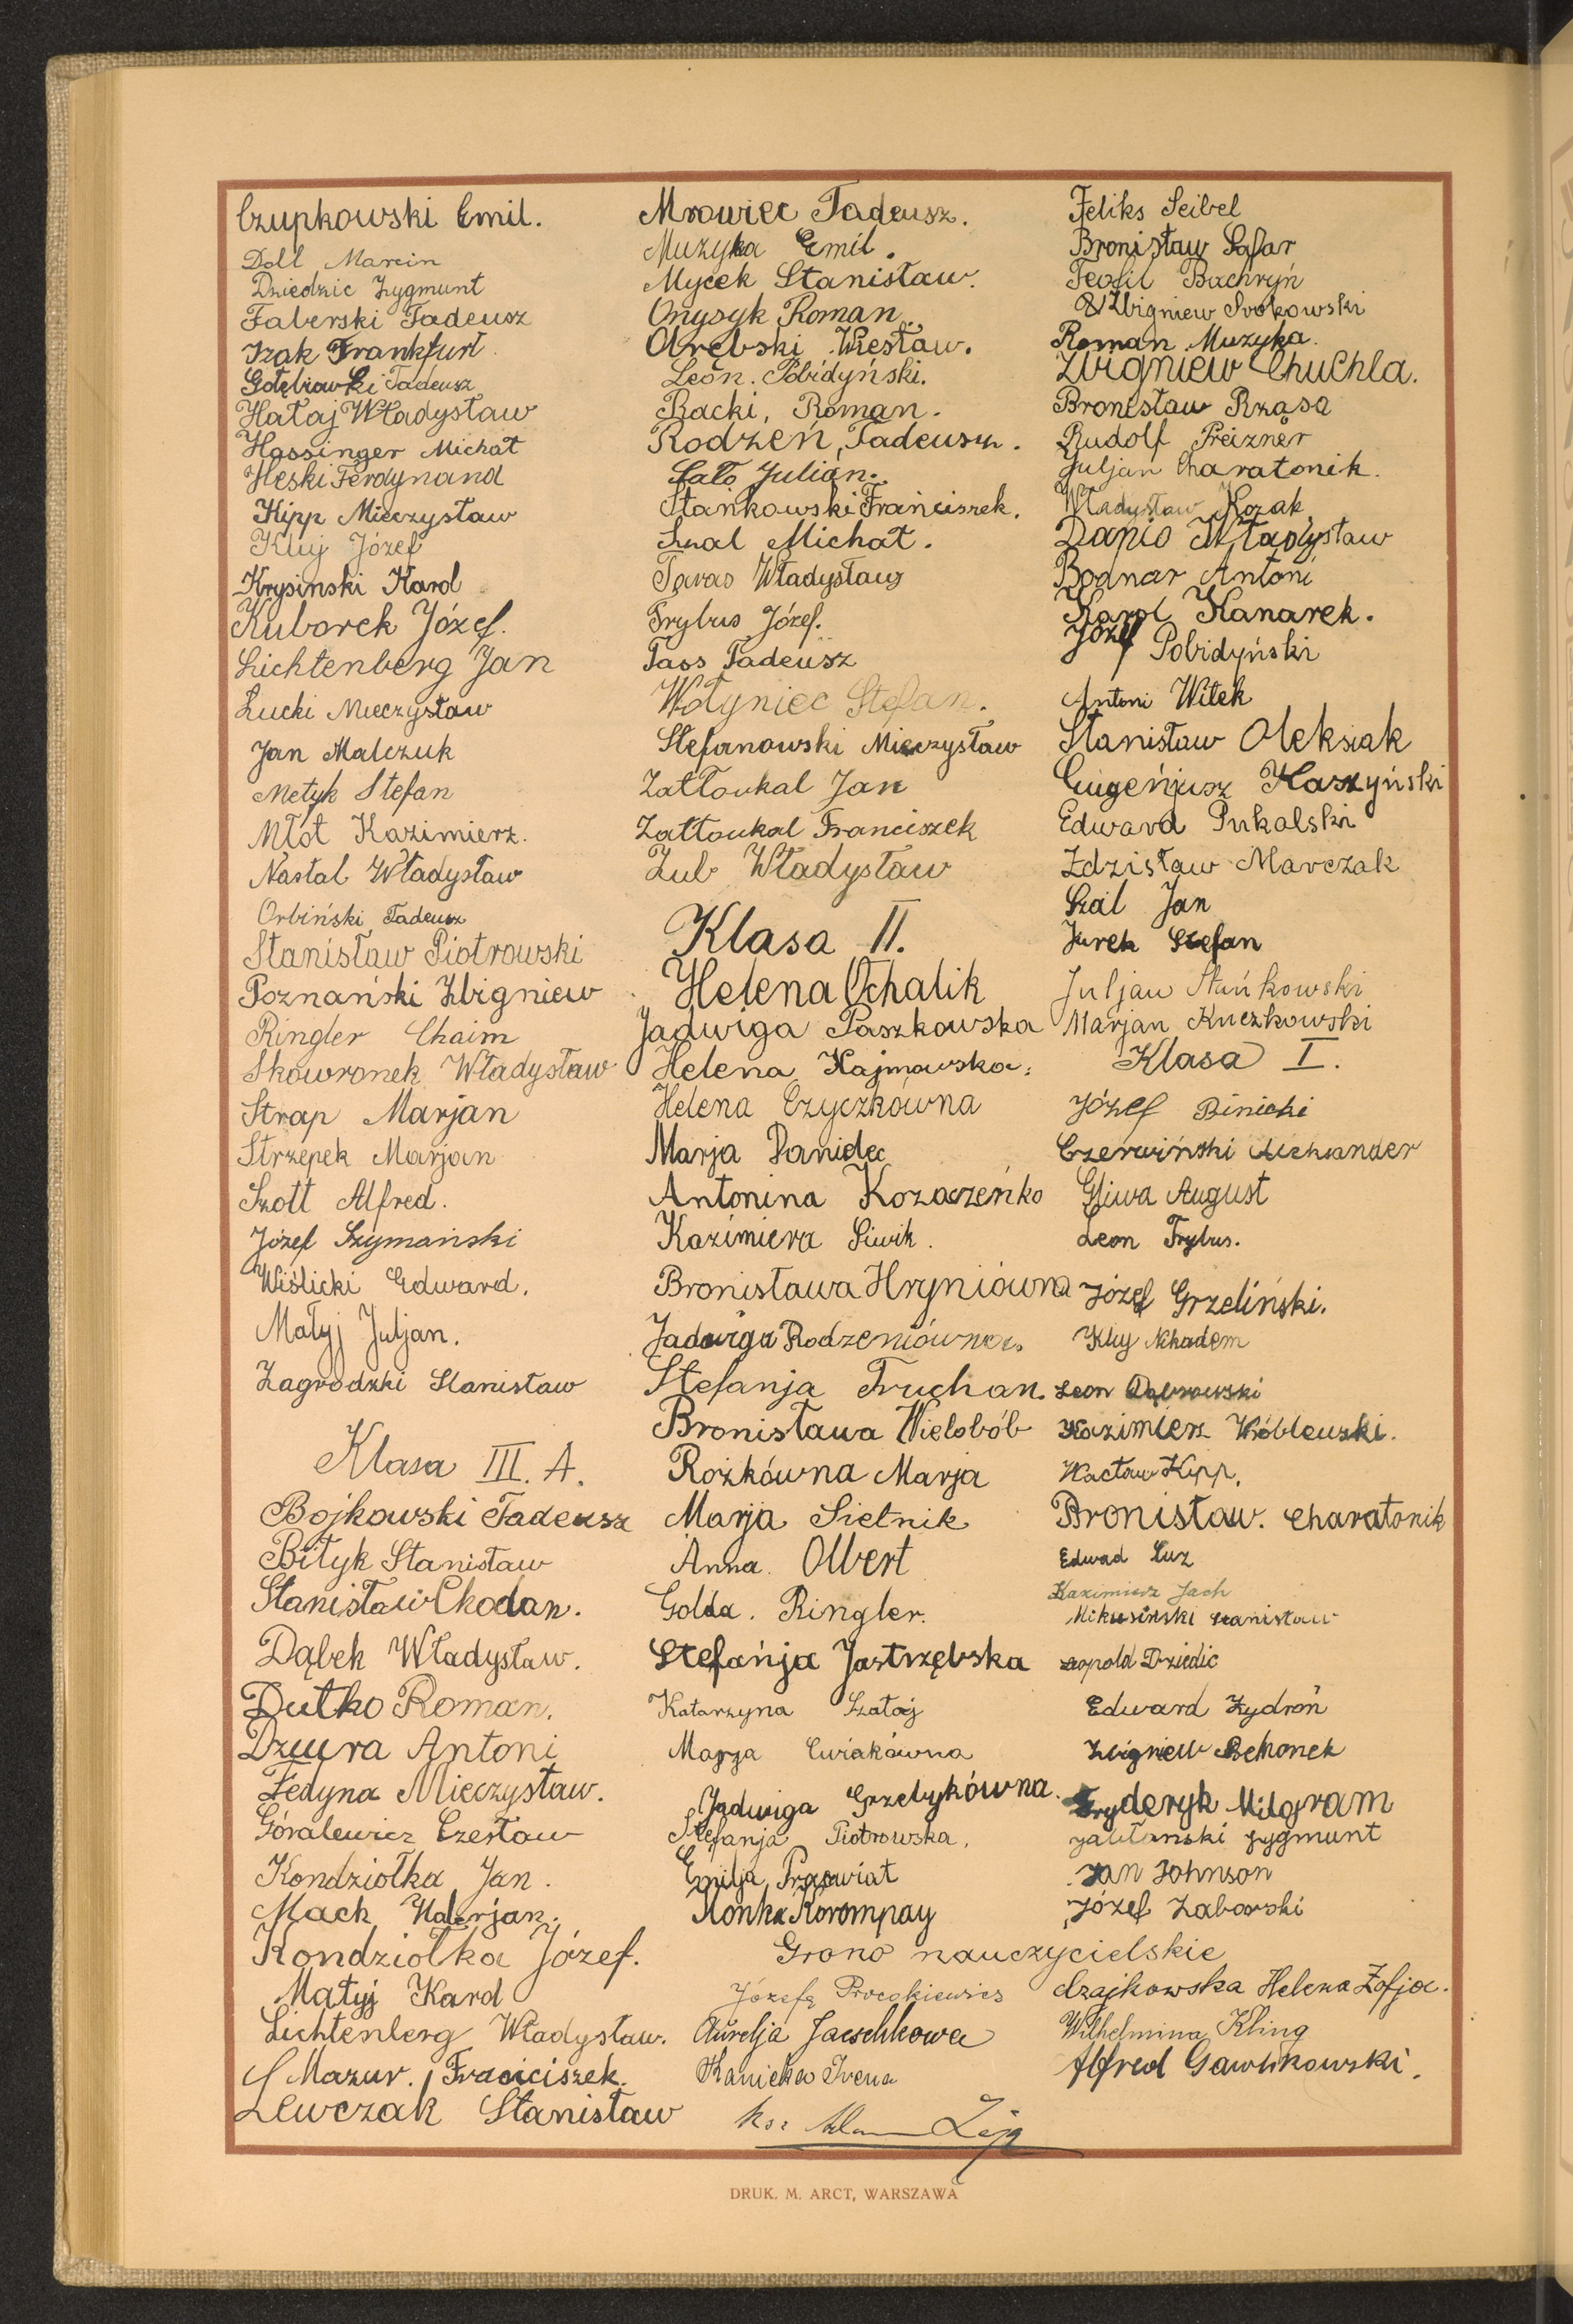 Czupkowski Emil.
Doll Marcin
Dziedzic Zygmunt
Faberski Tadeusz
Izak Frankfurt
Gołębiowski Tadeusz
Hałaj Władysław
Hassinger Michał
Heski Ferdynand
Kipp Mieczysław
Kluj Józef
Krysinski Karol
Kuborek Józef.
Lichtenberg Jan
Łucki Mieczysław
Jan Malczuk
Metyk Stefan
Młot Kazimierz.
Nastal Władysław
Orbiński Tadeusz
Stanisław Piotrowski
Poznański Zbigniew
Ringler Chaim
Skowronek Władysław
Strap Marjan
Strzepek Marjan
Szott Alfred.
Józef Szymański
Wiślicki Edward.
Matyj Juljan.
Zagrodzki Stanisław
Klasa III. A.
Bojkowski Tadeusz
Bityk Stanisław
Stanisław Chodan.
Dąbek Władysław.
Dutko Roman.
Dziura Antoni
Fedyna Mieczysław.
Góralewicz Czesław
Kondziołka Jan.
Mack Walerjan.
Kondziołka Józef.
Matyj Karol
Lichtenberg Władysław.
Mazur. Franciszek.
Lewczak Stanisław
Mrowiec Tadeusz.
Muzyka Emil.
Mycek Stanisław.
Onysyk Roman
Orębski Wiesław.
Leon. Pobidyński.
Racki, Roman.
Rodzeń, Tadeusz.
Sato Julian.
Stańkowski Franciszek.
Szal Michał.
Taras Władysław
Trybus Józef.
Tass Tadeusz
Wołyniec Stefan.
Stefanowski Mieczysław
Zatłoukal Jan
Zatłoukal Franciszek
Zub Władysław
Klasa II.
Helena Ochalik
Jadwiga Paszkowska
Helena Hajmowska.
Helena Czyczkówna
Marja Danidec
Antonina Kozaczeńko
Kazimiera Siwik.
Bronisława Hryniówna
Jadwiga Rodzeniówna.
Stefanja Truchan.
Bronisława Wielobób
Rożkówna Marja
Marja Sietnik
Anna. Olbert
Golda. Ringler.
Stefańja Jastrzębska
Katarzyna Szałaj
Marja Cwiakówna
Jadwiga Grzebykówna.
Stefanja Piotrowska.
Emilja
Monka Korompay
Feliks Seibel
Bronisław Safar
Teofil Bachryń
Zbigniew
Roman Muzyka.
Zbigniew Chuchla.
Bronisław Rząsa
Rudolf Preizner
Juljan Charatonik.
Władysław Kozak
Dańio Władysław
Bodnar Antoni
Karol Kanarek.
Józef Pobidyński
Antoni Witek
Stanisław Oleksiak
Eugeńjusz Kaszyński
Edward Pukalski
Zdzisław Marczak
Szal Jan
Jurek Stefan
Juljan Stańkowski
Marjan Kuczkowski
Klasa I.
Józef Binicki
Czerwiński Aleksander
Gliwa August
Leon Trybus.
Józef Grzeliński.
Kluj Nikodem
Leon Dąbrowski
Kazimierz Wróblewski.
Wacław Kipp.
Bronisław. Charatonik
Edward Luz
Kazimierz Jach
Mikusiński Stanisław
Leopold Dziedic
Edward Zydroń
Zbigniew Bekonek
Fryderyk Milgram
Jabłonski Zygmunt
Jan Johnson
Józef Zaborski
Grono nauczycielskie
Józefa
Aurelja Jaeschkowa
Kanicka Irena
ks. Adam Zając
Czajkowska Helena Zofja.
Wilhelmina Kling
Alfred Gawlikowski.
DRUK. M. ARCT, WARSZAWA